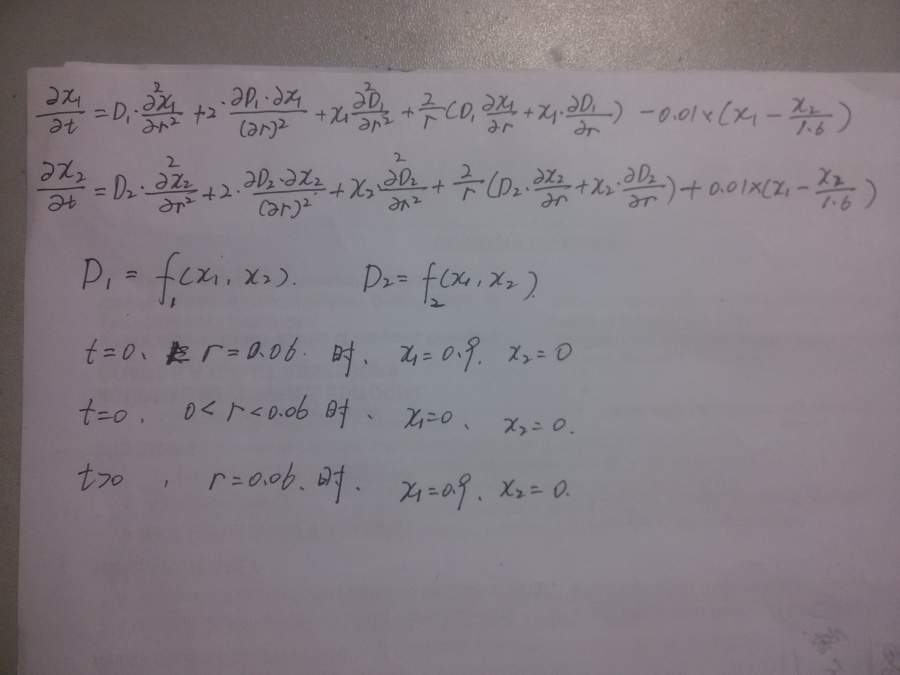 ∂x₁/∂t = D₁·∂²x₁/∂r² + 2·∂D₁·∂x₁/(∂r)² + x₁∂²D₁/∂r² + 2/r(D₁∂x₁/∂r + x₁·∂D₁/∂r) - 0.01×(x₁ - x₂/1.6)
∂x₂/∂t = D₂·∂²x₂/∂r² + 2·∂D₂·∂x₂/(∂r)² + x₂·∂²D₂/∂r² + 2/r(D₂·∂x₂/∂r + x₂·∂D₂/∂r) + 0.01×(x₁ - x₂/1.6)
D₁ = f₁(x₁, x₂). D₂ = f₂(x₁, x₂).
t=0、 r=0.06. 时、 x₁=0.9. x₂=0
t=0. 0<r<0.06 时、 x₁=0、 x₂=0.
t>0 , r=0.06、时. x₁=0.9、x₂=0.